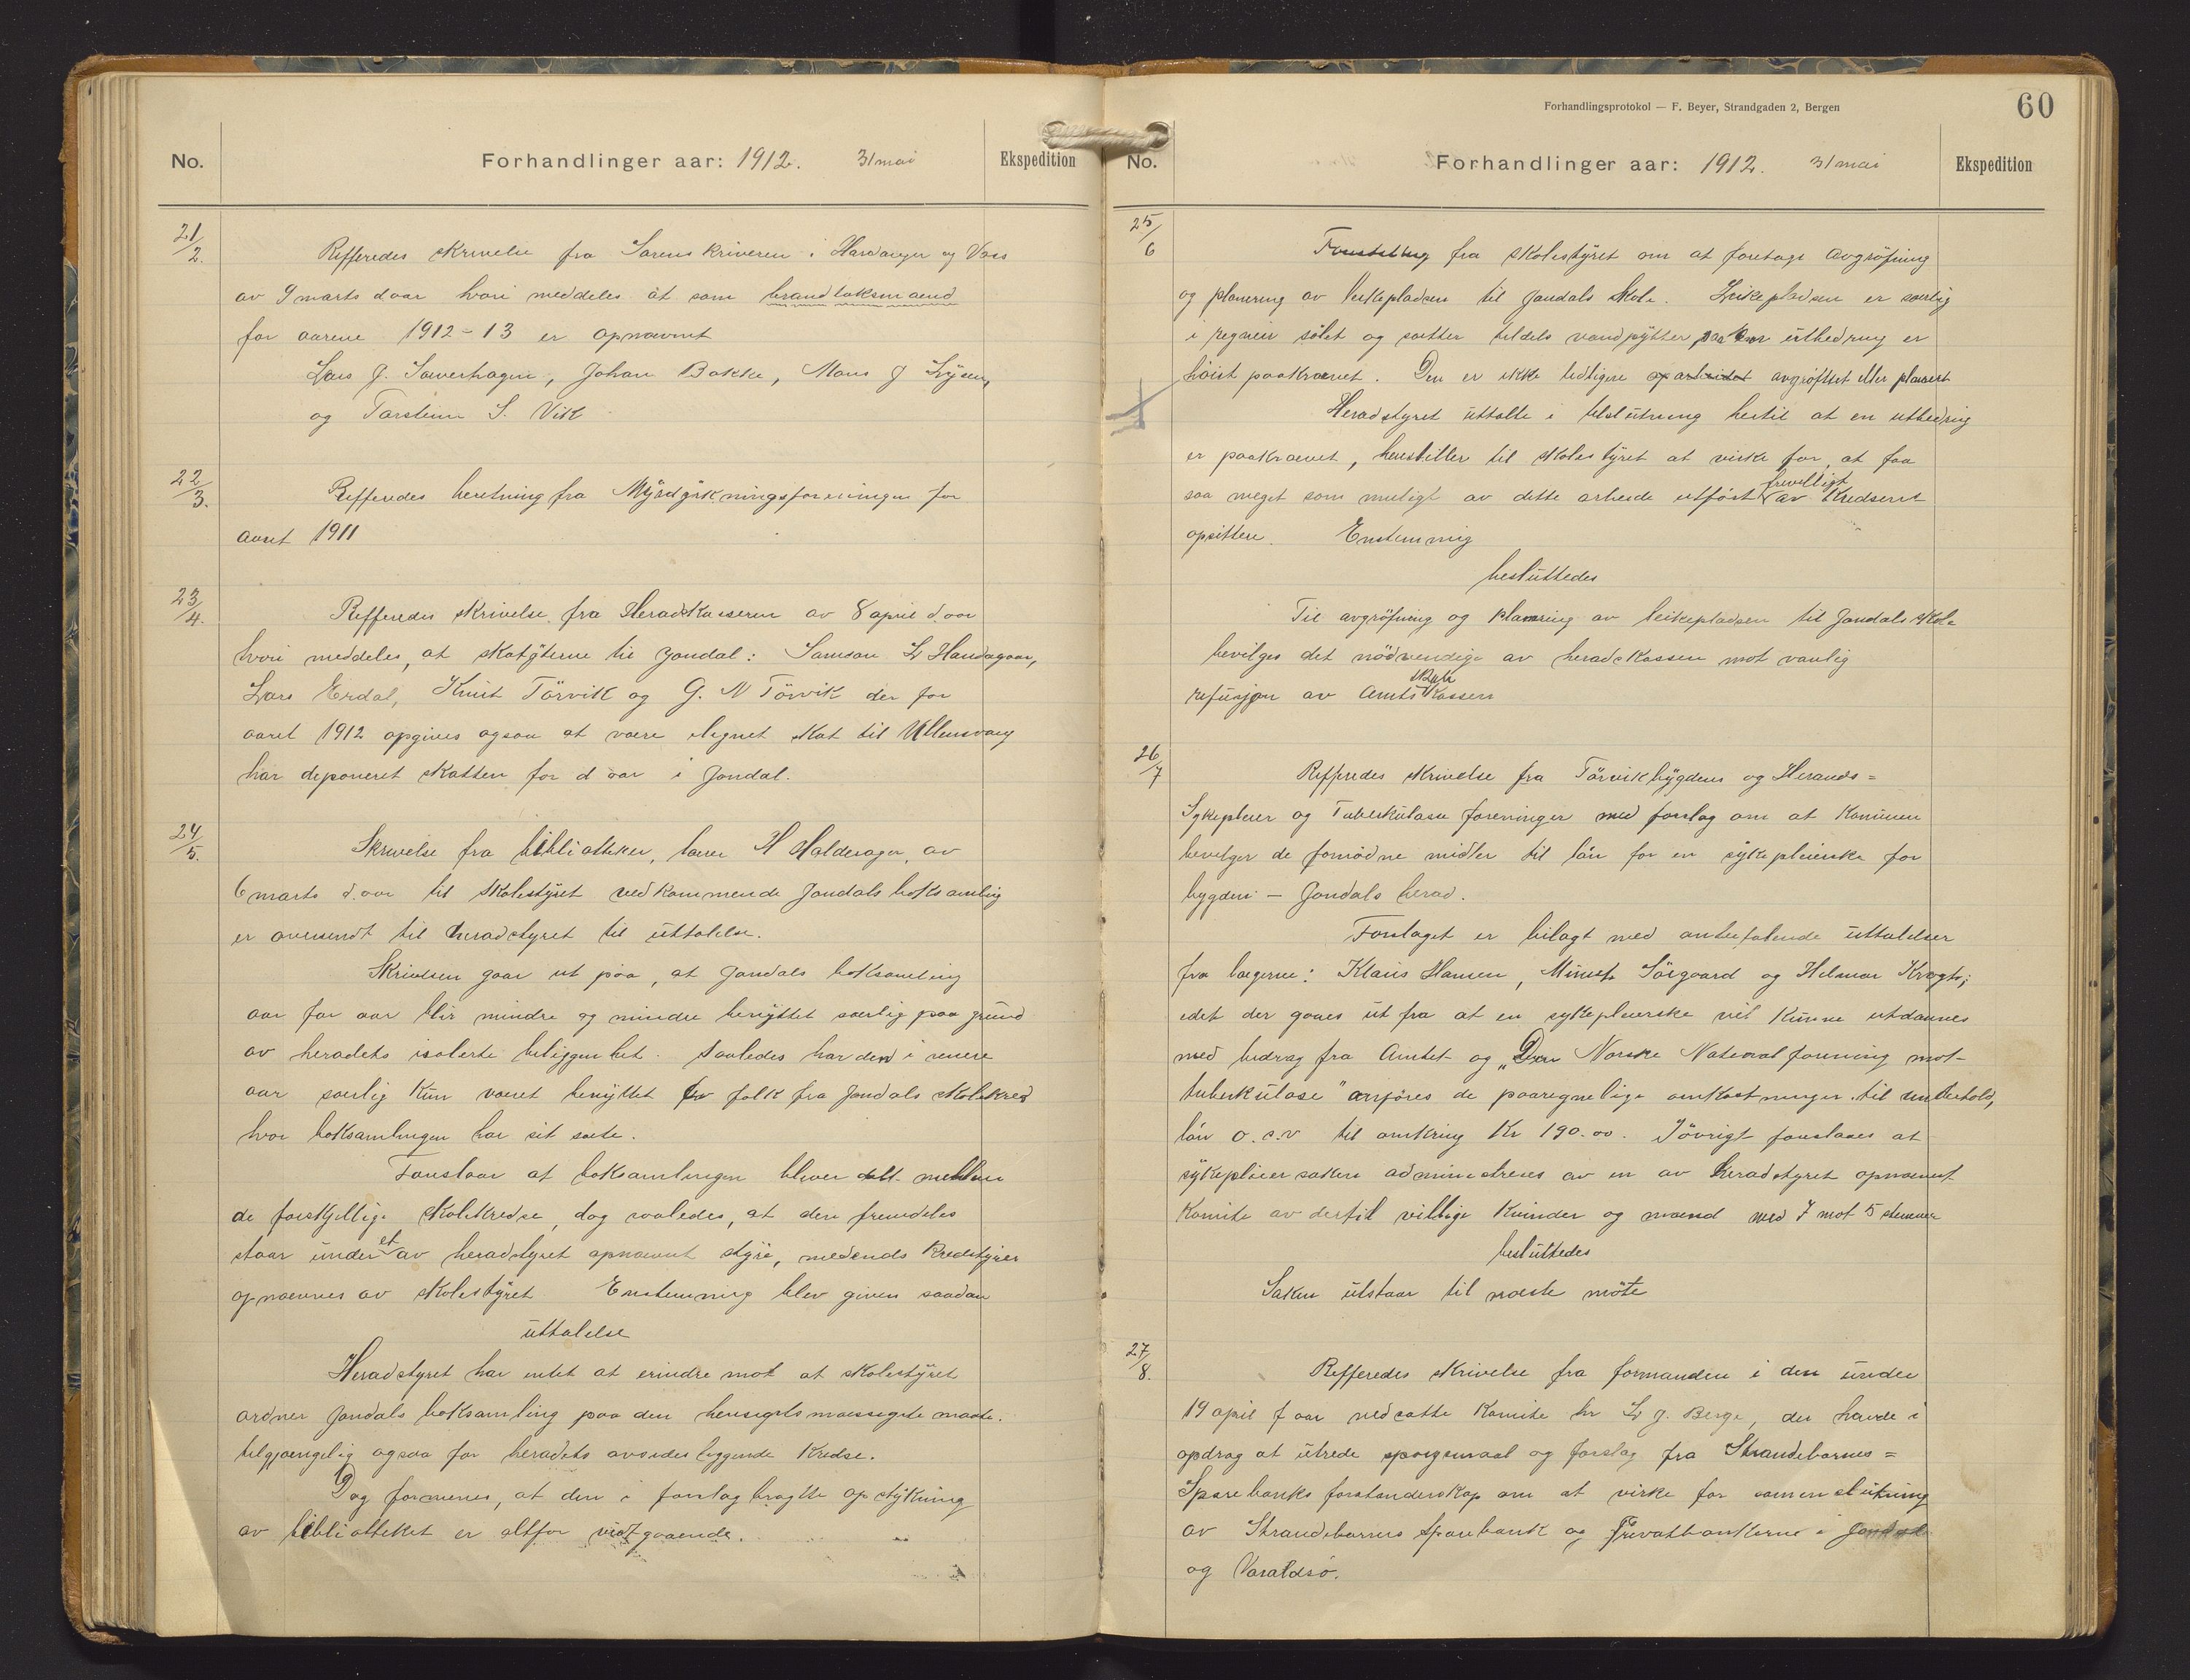 No.
Forhandlinger aar: 1912. 31 mai
Ekspedition
21/2.
Refferedes skrivelse fra Sorenskriveren i Hardanger og Vos
av 9 marts d aar hvori meddeles at som brandtaksmænd
for aarene 1912-13 er opnævnt
Lars J. Samerhagen, Johan Bakke, Mons J
og Torstein S. Vik
22/3.
Refferedes beretning fra Myrdyrkningsforeningen for
aaret 1911
23/4.
Refferedes skrivelse fra Heradskasseren av 8 april d. aar
hvori meddeles, at skatyterne til Jondal: Samson L Handagaar,
Lars Erdal, Knut Törvik og G. N Törvik der for
aaret 1912 opgives ogsaa at være ilignet skat til Ullensvang
har deponeret skatten for d aar i Jondal.
24/5.
Skrivelse fra bibliotheker, lærer H Halderager, av
6 marts d. aar til skolestyret vedkommende Jondals boksamling
er oversendt til heradstyret til uttalelse.
Skrivelsen gaar ut paa, at Jondals boksamling
aar for aar blir mindre og mindre benyttet særlig paa grund
av heradets isolerte beliggenhet. Saaledes har den i senere
aar særlig kun været benyttet av folk fra Jondals skolekreds
hvor boksamlingen har sit sæte.
Foreslaar at boksamlingen bliver delt mellem
de forskjellige skolekredse, dog saaledes, at den fremdeles
staar under et av heradstyret opnævnt styre, medens kredstyrer
opnævnes av skolestyret Enstemmig blev given saadan
uttalelse
Heradstyret har intet at erindre mot at skolestyret
ordner Jondals boksamling paa den hensigtsmæssigste maate.
tilgjængelig ogsaa for heradets avsidesliggende kredse.
Dog formenes, at den i forslag bragte opstykning
av bibliotheket er altfor vidtgaaende.
Forhandlingsprotokol — F. Beyer, Strandgaden 2, Bergen
60
No.
Forhandlinger aar: 1912. 31 mai
Ekspedition
25/6
fra skolestyret om at foretage avgröfning
og planering av leikepladsen til Jondals skole. Leikepladsen er særlig
i regnveir sölet og sætter tildels vandpytter, saa en utbedring er
höist paakrævet. Den er ikke tidligere oparbeidet avgröftet eller planert
Heradstyret uttalte i beslutning hertil at en utbedring
er paakrævet, henstiller til skolestyret at virke for at faa
saa meget som muligt av dette arbeide utfört frivilligt av kredsens
opsittere. Enstemmig
besluttedes
Til avgröfning og planering av leikepladsen til Jondals skole
bevilges det nödvendige av heradskassen mot vanlig
refusjon av Amts skole kassen
26/7
Refferedes skrivelse fra Törvikbygdens og Herands=
Sykepleier og Tuberkulose foreninger med forslag om at komunen
bevilger de fornödne midler til lön for en sykepleierske for
bygden — Jondals herad.
Forslaget er bilagt med anbefalende uttalelser
fra lægerne: Klaus Hansen, Sörgaard og Hilmar
idet der gaaes ut fra at en sykepleierske vil kunne utdannes
med bidrag fra Amtet og „Den Norske National forening mot
tuberkulose" anföres de paaregnelige omkostninger til underhold,
lön o.s.v til omkring Kr 190.00. Iövrigt foreslaaes at
sykepleiersaken administreres av en av heradstyret opnævnt
komite av dertil villige kvinder og mænd med 7 mot 5 stemmer
besluttedes
Saken utstaar til næste möte
27/8.
Refferedes skrivelse fra formanden i den under
19 april f aar nedsatte komite hr L J. Berge, der havde i
opdrag at utrede spörgsmaal og forslag fra Strandebarms=
Sparebanks forstanderskap om at virke for sammenslutning
av Strandebarms Sparebank og Privatbankerne i Jondal
og Varaldsö.